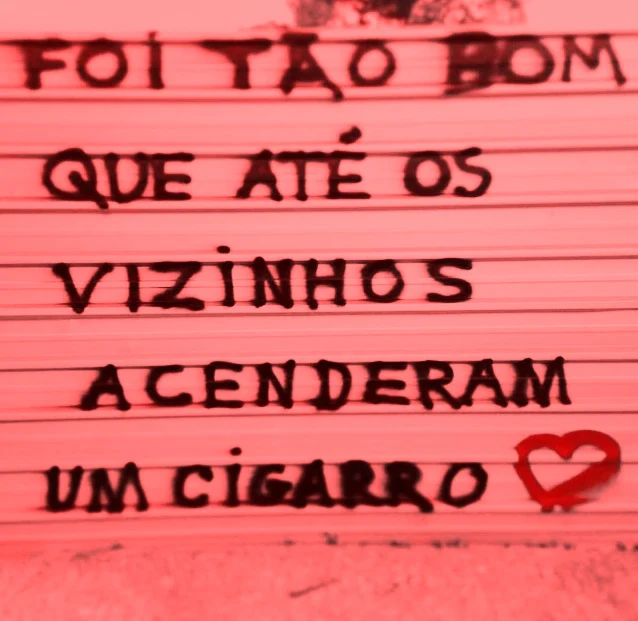 FOI TÃO BOM
QUE ATÉ OS
VIZINHOS
ACENDERAM
UM CIGARRO